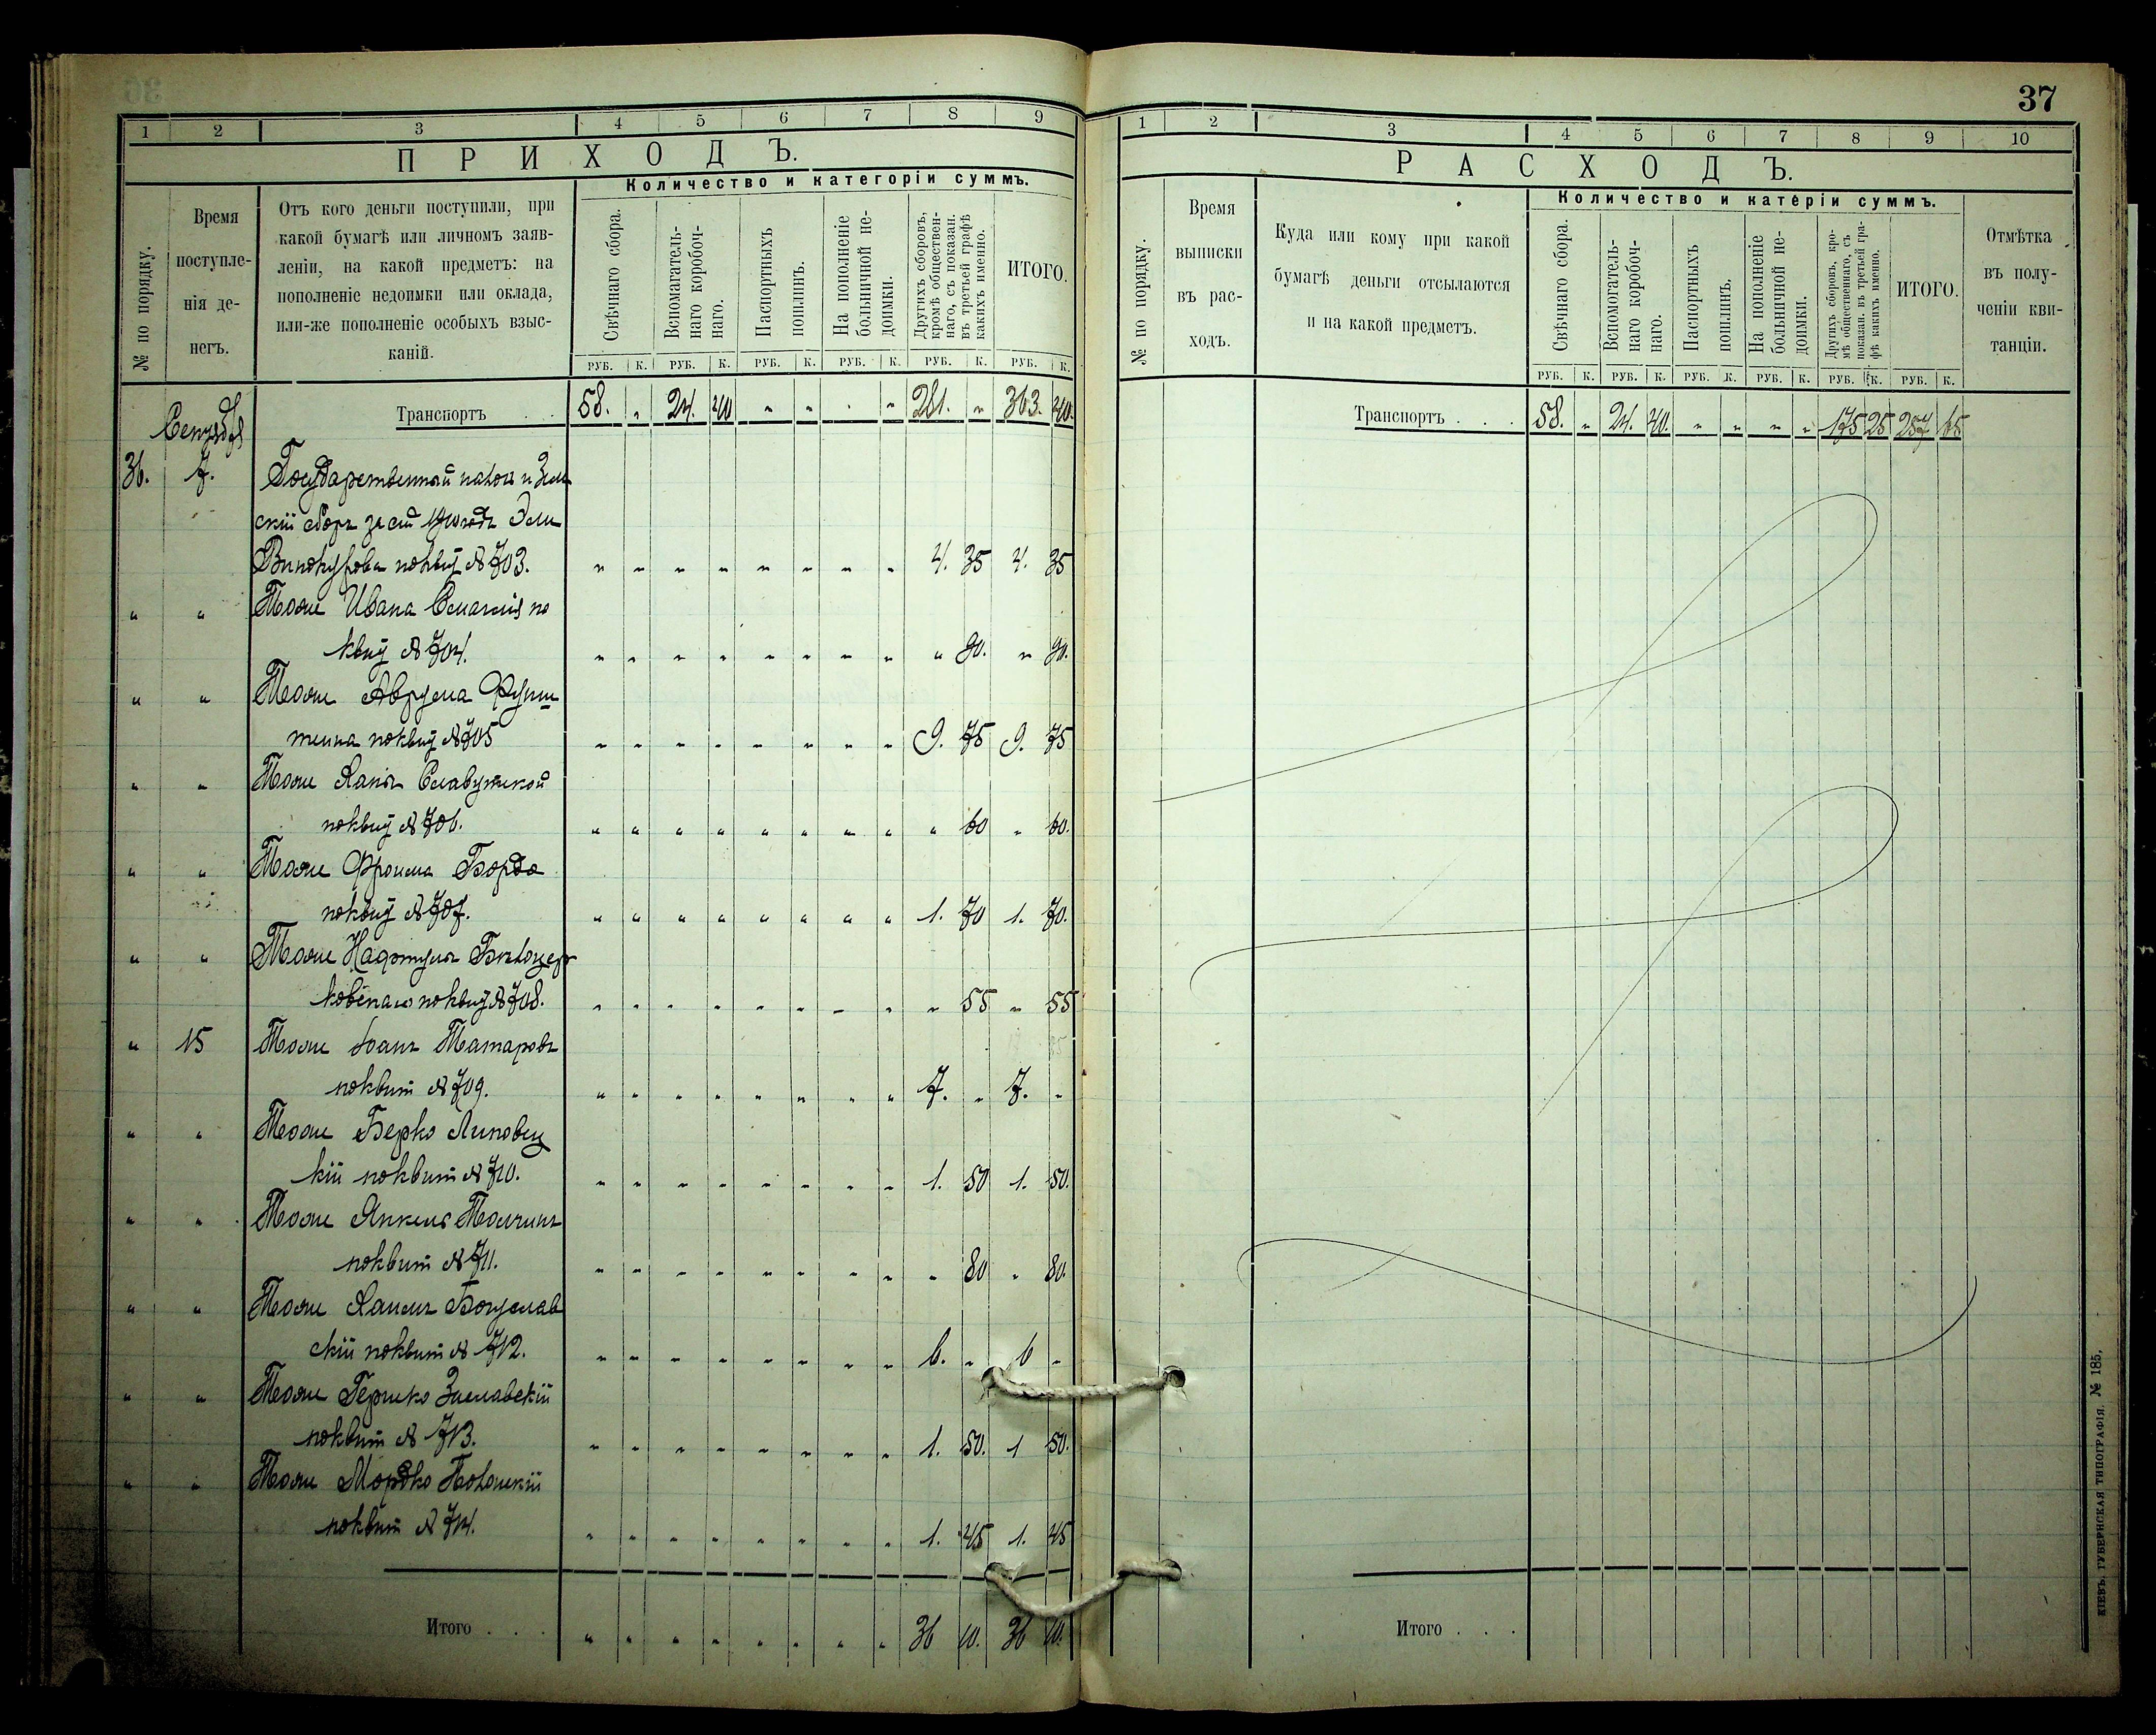 37
1 2 3 4 5 6 7 8 9
ПРИХОДЪ.
Количество и категоріи суммъ.
№ по порядку.
Время
поступле-
нія де-
негъ.
Отъ кого деньги поступили, при
какой бумагѣ или личномъ заяв-
леніи, на какой предметъ: на
пополненіе недоимки или оклада,
или-же пополненіе особыхъ взыс-
каній.
Свѣчнаго сбора.
Вспомогатель-
наго коробоч-
наго.
Паспортныхъ
пошлинъ.
На пополненіе
больничной не-
доимки.
Другихъ сборовъ,
кромѣ обществен-
наго, съ показан.
въ третьей графѣ
какихъ именно.
ИТОГО.
РУБ. К. РУБ. К. РУБ. К. РУБ. К. РУБ. К. РУБ. К.
Транспортъ . . 58. " 24. 40 " " . " 281. " 363. 40.
Сентября
36. 7. Государственный налогъ и Зем
скій сборъ за сій 1910 годъ Эли
Винокурова по квит № 703. " " " " " " " " 4. 35 4. 35
" " Тоже Ивана по
квит № 704. " " " " " " " " " 90. " 90.
" " Тоже Аврума
тейна по квит № 705 " " " " " " " " 9. 75 9. 75
" " Тоже Славутской
по квит № 706. " " " " " " " " " 60 " 60.
" " Тоже Фроима Борда
по квит № 707. " " " " " " " " 1. 70 1. 70.
" " Тоже Нафтула Бѣлоцер
ковскаго по квит № 708. " " " " " " " " " 55 " 55
" 15 Тоже Татаровъ
по квит № 709. " " " " " " " " 7. " 7. "
" " Тоже Берко Липовец
кій по квит № 710. " " " " " " " " 1. 50 1. 50.
" " Тоже Янкель Толчинъ
по квит № 711. " " " " " " " " " 80 " 80.
" " Тоже Хаимъ Богуслав
скій по квит № 712. " " " " " " " " 6. " 6 "
" " Тоже Гершко Заславскій
по квит № 713. " " " " " " " " 1. 50. 1 50.
" " Тоже Мордко Полонскій
по квит № 714. " " " " " " " " 1. 45 1. 45
Итого . . . " " " " " " " " 36 10. 36 10.
1 2 3 4 5 6 7 8 9 10
РАСХОДЪ.
Количество и катерiи суммъ.
№ по порядку.
Время
выписки
въ рас-
ходъ.
Куда или кому при какой
бумагѣ деньги отсылаются
и на какой предметъ.
Свѣчнаго сбора.
Вспомогатель-
наго коробоч-
наго.
Паспортныхъ
пошлинъ.
На пополненіе
больничной не-
доимки.
Другихъ сборовъ, кро-
мѣ общественнаго, съ
показан. въ третьей гра-
фѣ какихъ именно.
ИТОГО.
Отмѣтка
въ полу-
ченіи кви-
танціи.
РУБ. К. РУБ. К. РУБ. К. РУБ. К. РУБ. К. РУБ. К.
Транспортъ . . . 58. " 24. 40. " " " " 175 25 257 65
Итого . . .
КІЕВЪ. ГУБЕРНСКАЯ ТИПОГРАФІЯ. № 185.